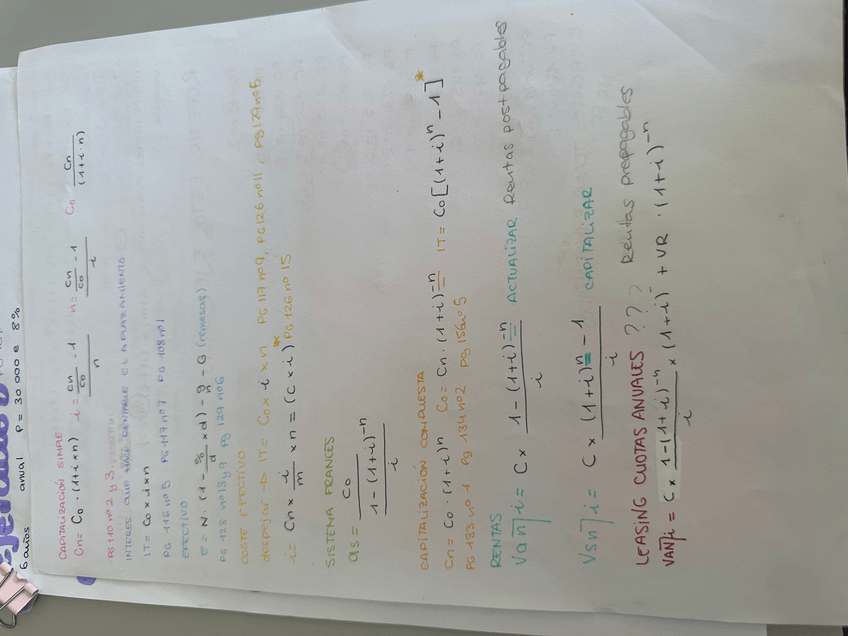 6 años anual P = 30 000 € 8%
CAPITALIZACIÓN SIMPLE
Cn = C0 · (1+i×n) i = (Cn/C0 - 1)/n n = (Cn/C0 - 1)/i C0 Cn/(1+i·n)
PG 110 nº 2 y 3
INTERES QUE HACE RENTABLE EL APLAZAMIENTO
IT = C0 × i × n
PG 116 nº5 PG 117 nº7 PG 108 nº1
EFECTIVO
e = N · (1 - %/d × d) - g/n - G (remesas)
PG 123 nº 13 y 9 PG 129 nº6
COSTE EFECTIVO
despejar → IT = C0 × i × n PG 117 nº9, PG 126 nº11, PG 129 nº6
i = Cn × i/m × n = (C × i)* PG 126 nº 15
SISTEMA FRANCES
as = C0/((1 - (1+i)^-n)/i)
CAPITALIZACIÓN COMPUESTA
Cn = C0 · (1+i)^n C0 = Cn · (1+i)^-n IT = C0 [(1+i)^n - 1]*
PG 133 nº 1 Pg 134 nº2 Pg 156 nº5
RENTAS
Van̅|i = C × (1 - (1+i)^-n)/i ACTUALIZAR Rentas postpagables
Vsn̅|i = C × ((1+i)^n - 1)/i CAPITALIZAR
LEASING CUOTAS ANUALES ??? Rentas prepagables
VAn̅|i = C × (1 - (1+i)^-n)/i × (1+i) + VR · (1+i)^-n